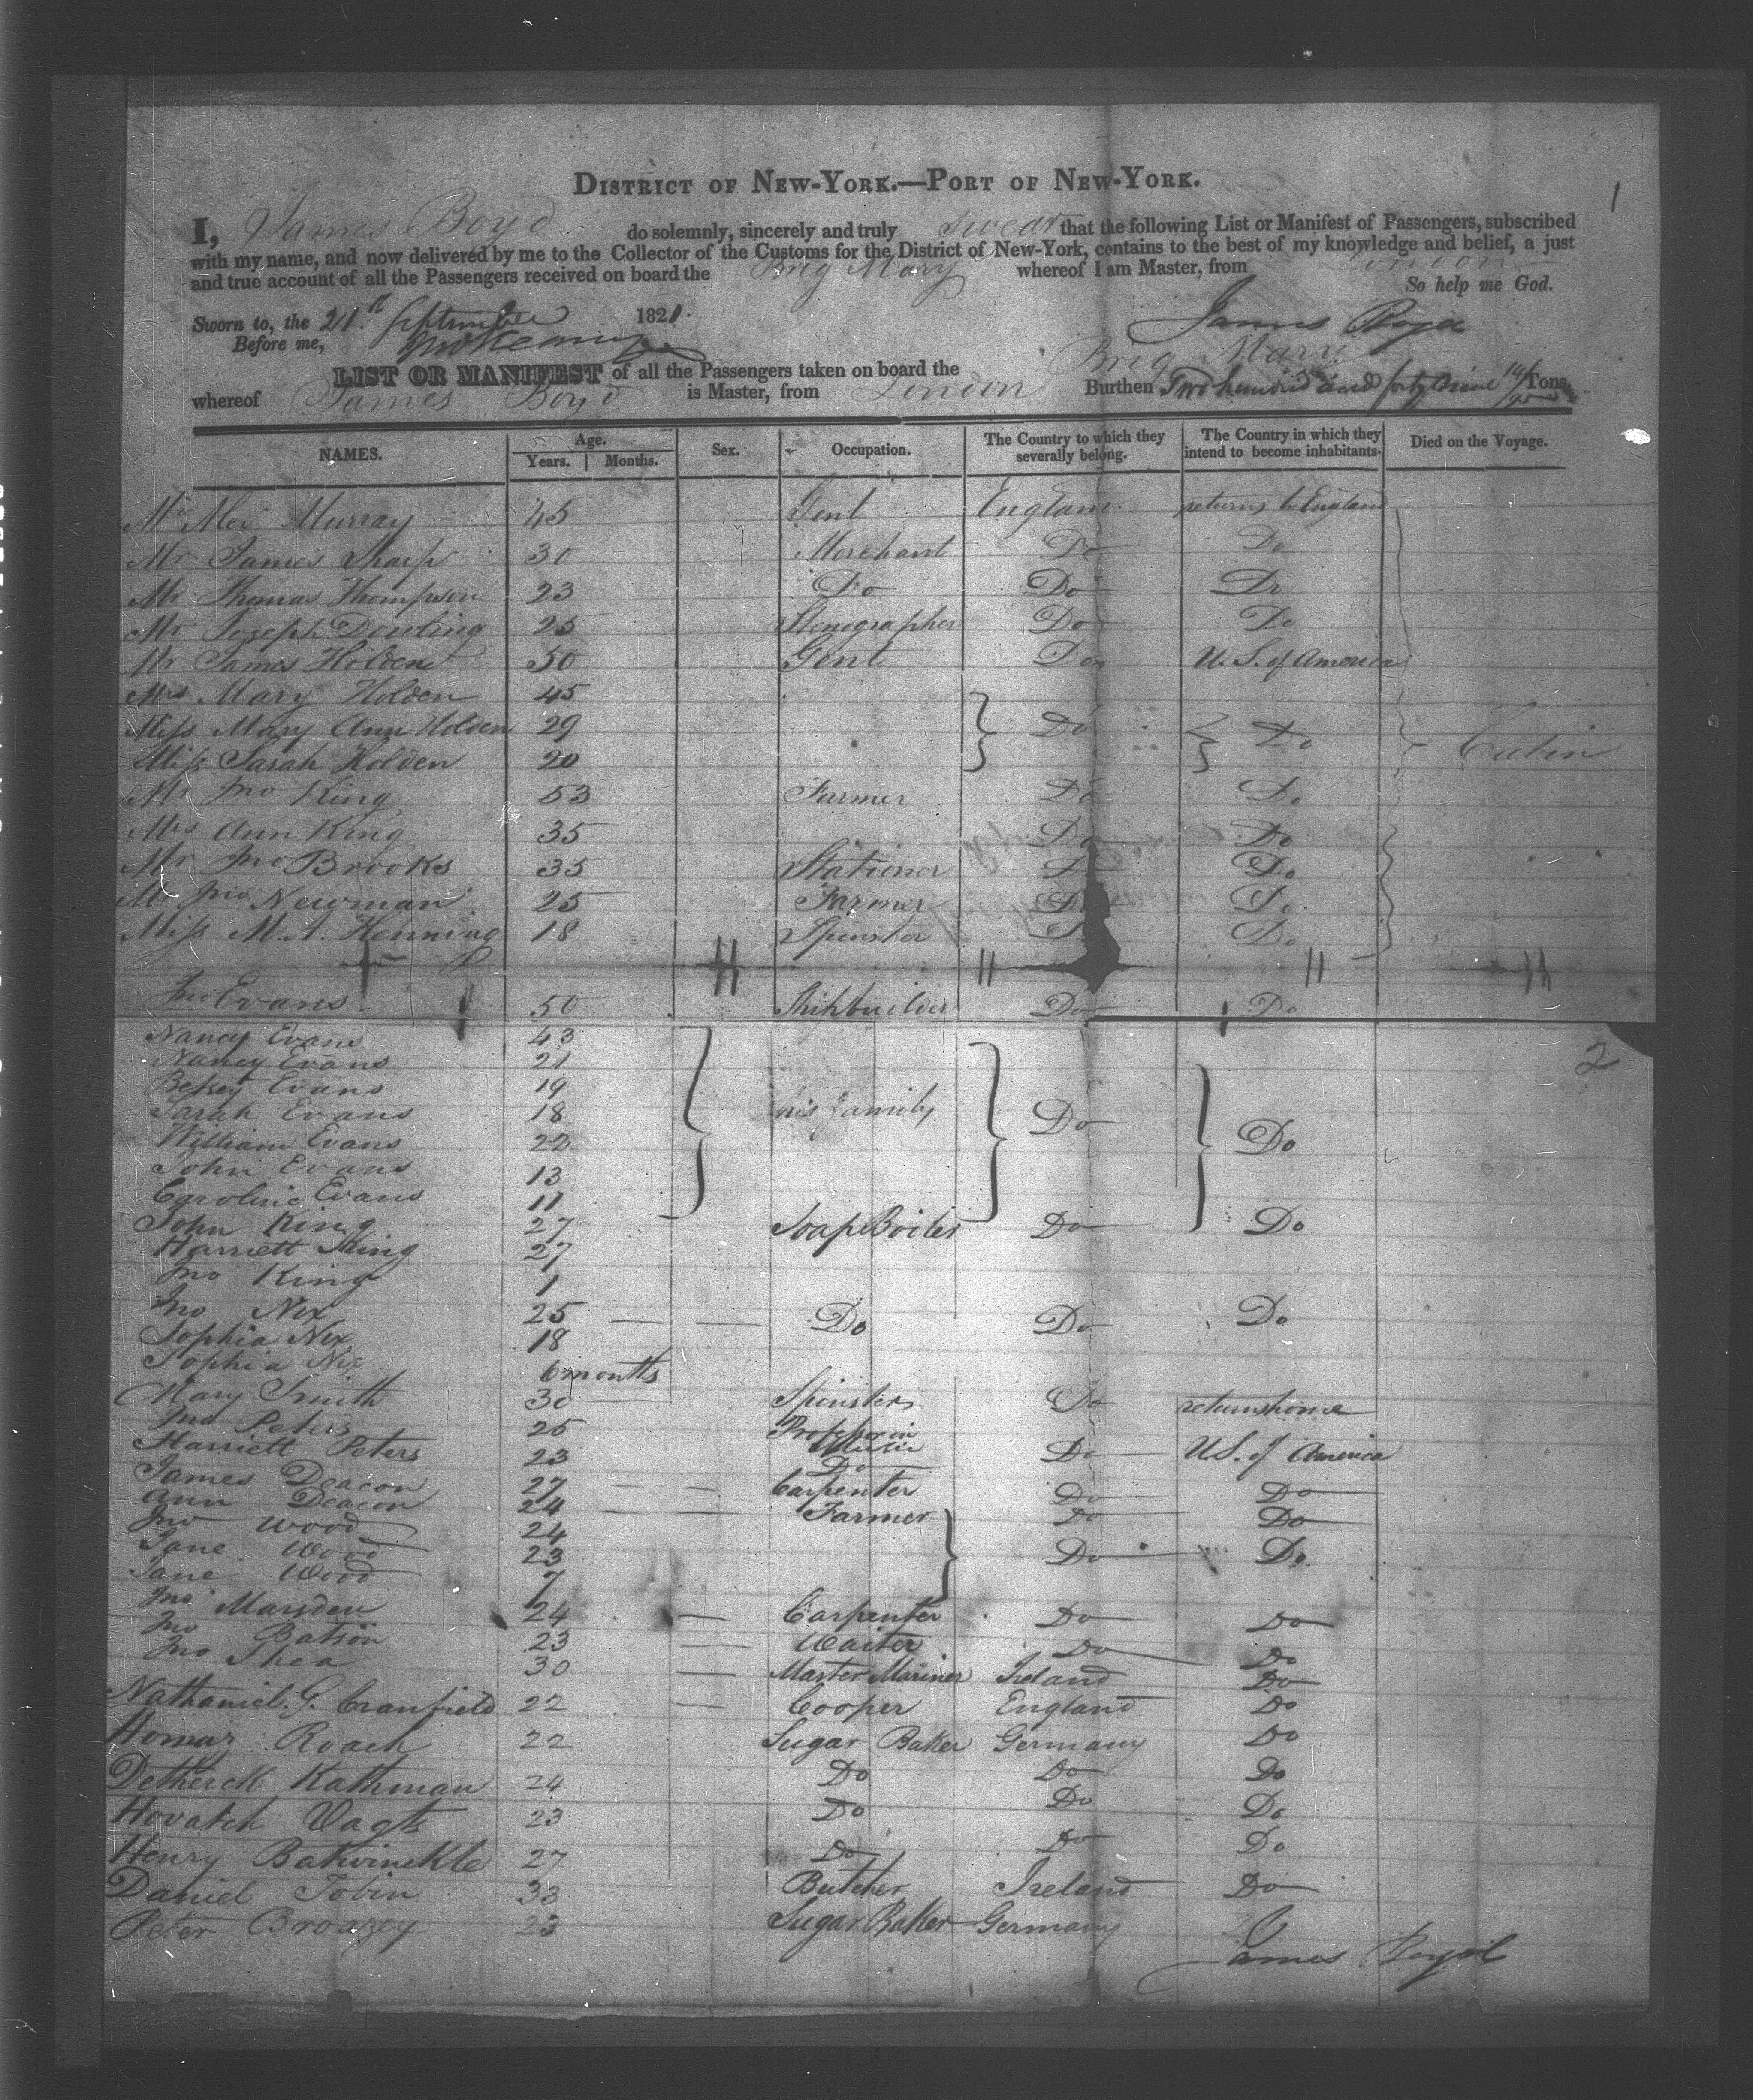 1
DISTRICT OF NEW-YORK.—PORT OF NEW-YORK.
I, James Boyd do solemnly, sincerely and truly swear that the following List or Manifest of Passengers, subscribed
with my name, and now delivered by me to the Collector of the Customs for the District of New-York, contains to the best of my knowledge and belief, a just
and true account of all the Passengers received on board the Brig Mary whereof I am Master, from London
So help me God.
Sworn to, the 21.th September 1821. James Boyd
Before me,
Brig Mary
LIST OR MANIFEST of all the Passengers taken on board the
whereof James Boyd is Master, from London Burthen Two hundred and forty nine Tons.
NAMES. Age. Years. Months. Sex. Occupation. The Country to which they severally belong. The Country in which they intend to become inhabitants. Died on the Voyage.
Mr Murray 45 Gent England returns to England
Mr James Sharp 30 Merchant Do Do
Mr Thomas Thompson 23 Do Do Do
Mr Joseph Dowling 25 Stenographer Do Do
Mr James Holden 50 Gent Do U.S. of America
Mrs Mary Holden 45
Miss Mary Ann Holden 29 Do Do
Miss Sarah Holden 20 Cabin
Mr Jno King 53 Farmer Do Do
Mrs Ann King 35 Do Do
Mr Jno Brooks 35 Stationer Do Do
Mr Jno Newman 25 Farmer Do Do
Miss M.A. Henning 18 Spinster Do Do
Jno Evans 50 Shipbuilder Do Do
2
Nancy Evans 43
Nancy Evans 21
Betsey Evans 19
Sarah Evans 18 his family Do
William Evans 22 Do
John Evans 13
Caroline Evans 11
John King 27 Soap Boiler Do Do
Harriett King 27
Jno King 1
Jno Nex 25 Do Do Do
Sophia Nex 18
Sophia Nex 6 months
Mary Smith 30 Spinster Do returns home
Jno Peters 25 Professor in Music
Harriett Peters 23 Do Do U.S. of America
James Deacon 27 Carpenter Do Do
Ann Deacon 24 Farmer Do Do
Jno Wood 24
Jane Wood 23 Do Do
Jane Wood 7
Jno Marsden 24 Carpenter Do Do
Jno Batson 23 Waiter Do Do
Jno Shea 30 Master Mariner Ireland Do
Nathaniel G. Cranfield 22 Cooper England Do
Homar Roach 22 Sugar Baker Germany Do
Detherck Kathman 24 Do Do Do
Hovatch Vagts 23 Do Do Do
Henry Batwinckle 27 Do Do Do
Daniel Tobin 33 Butcher Ireland Do
Peter Broazey 23 Sugar Baker Germany
James Boyd